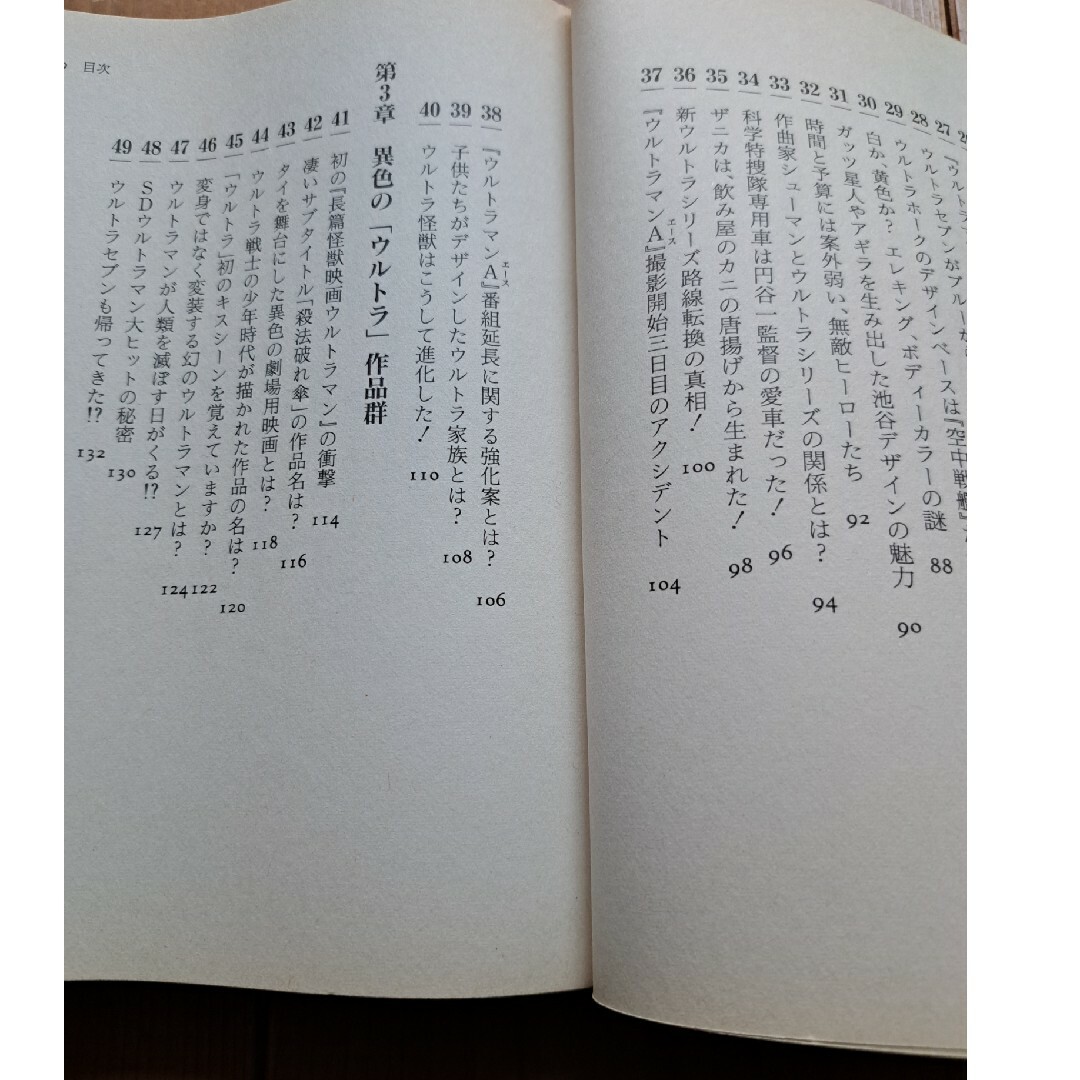 27 『ウルトラ
28 ウルトラセブンがブルー
29 ウルトラホークのデザインベースは『空中戦艦』
30 白か、黄色か? エレキング、ボディーカラーの謎 88
31 ガッツ星人やアギラを生み出した池谷デザインの魅力 90
32 時間と予算には案外弱い、無敵ヒーローたち 92
33 作曲家シューマンとウルトラシリーズの関係とは? 94
34 科学特捜隊専用車は円谷一監督の愛車だった! 96
35 ザニカは、飲み屋のカニの唐揚げから生まれた! 98
36 新ウルトラシリーズ路線転換の真相! 100
37 『ウルトラマンA』撮影開始三日目のアクシデント 104
エース
38 『ウルトラマンA』番組延長に関する強化案とは? 106
エース
39 子供たちがデザインしたウルトラ家族とは? 108
40 ウルトラ怪獣はこうして進化した! 110
第3章 異色の「ウルトラ」作品群
41 初の『長篇怪獣映画ウルトラマン』の衝撃 114
42 凄いサブタイトル「殺法破れ傘」の作品名は? 116
43 タイを舞台にした異色の劇場用映画とは? 118
44 ウルトラ戦士の少年時代が描かれた作品の名は? 120
45 「ウルトラ」初のキスシーンを覚えていますか? 122
46 変身ではなく変装する幻のウルトラマンとは? 124
47 ウルトラマンが人類を滅ぼす日がくる!? 127
48 SDウルトラマン大ヒットの秘密 130
49 ウルトラセブンも帰ってきた!? 132
目次